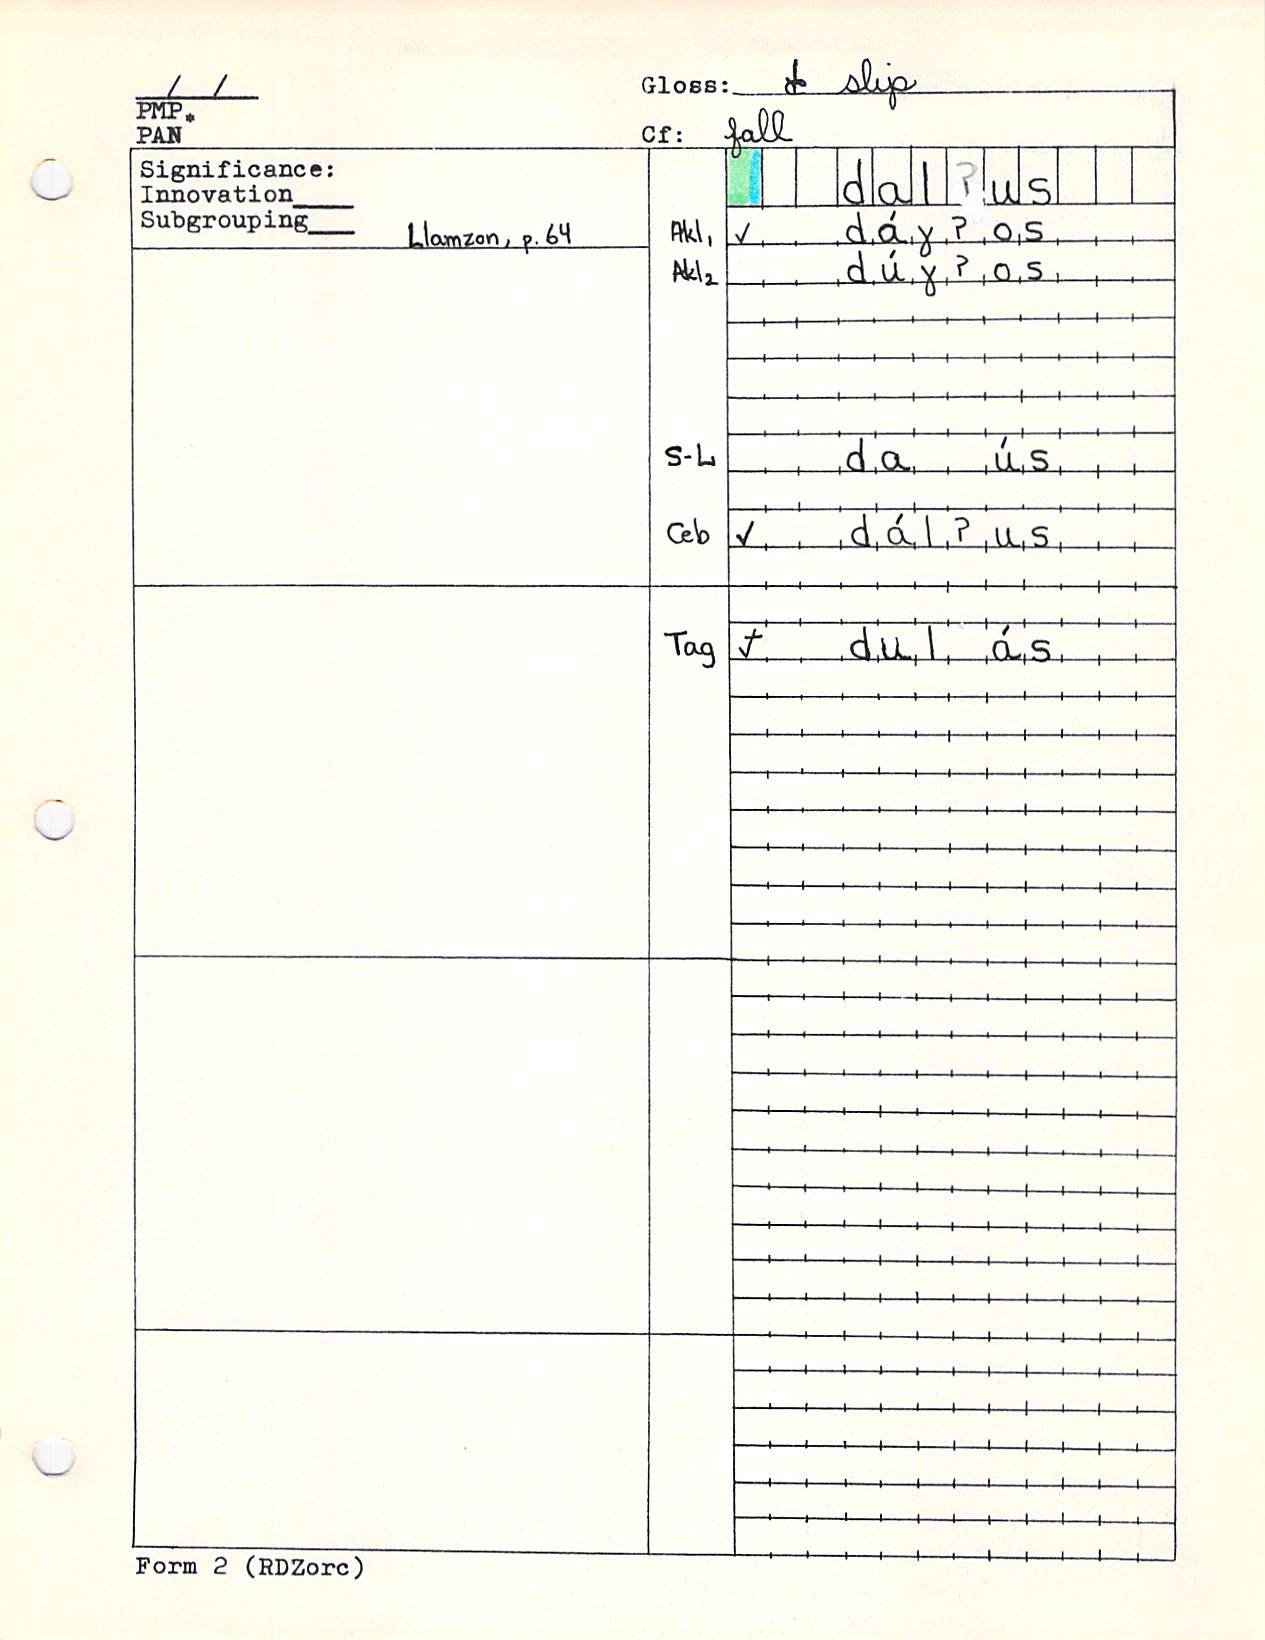 / /
PMP*
PAN
Gloss: to slip
Cf: fall
Significance:
Innovation____
Subgrouping___
Llamzon, p. 64
dalʔus
Akl₁ ✓ dáɣʔos
Akl₂ dúɣʔos
S-L da ús
Ceb ✓ dálʔus
Tag dul ás
Form 2 (RDZorc)